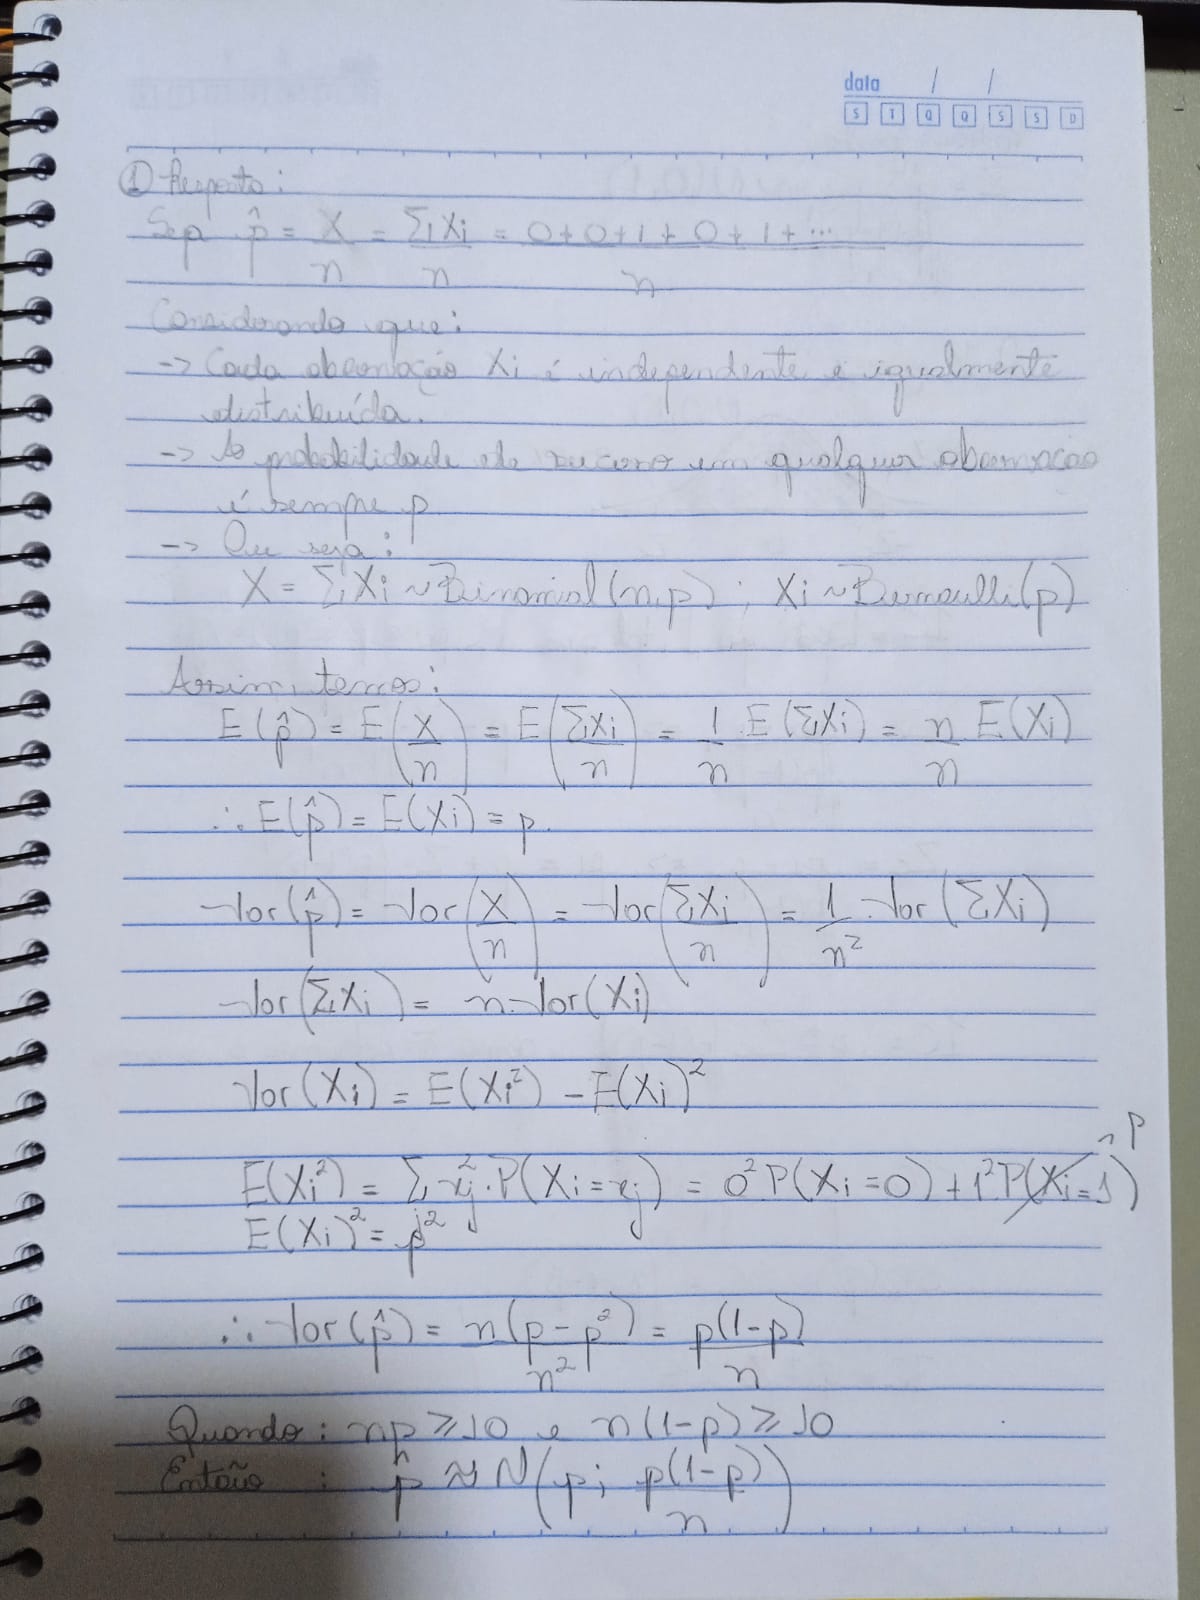 data / /
S T Q Q S S D
① Resposta:
Seja p̂ = X/n = ΣXi/n = 0+0+1+0+1+.../n
Considerando que:
-> Cada observação Xi é independente e igualmente
distribuída.
-> A probabilidade de sucesso em qualquer observação
é sempre p
-> Ou seja:
X = ΣXi ~ Binomial(n,p) ; Xi ~ Bernoulli(p)
Assim, temos:
E(p̂) = E(X/n) = E(ΣXi/n) = 1/n E(ΣXi) = n/n E(Xi)
∴ E(p̂) = E(Xi) = p.
Var(p̂) = Var(X/n) = Var(ΣXi/n) = 1/n² . Var(ΣXi)
Var(ΣXi) = n.Var(Xi)
Var(Xi) = E(Xi²) - E(Xi)²
E(Xi²) = Σj xj².P(Xi=xj) = 0²P(Xi=0) + 1²P(Xi=1) p
E(Xi)² = p²
∴ Var(p̂) = n(p-p²)/n² = p(1-p)/n
Quando: np ≥ 10 e n(1-p) ≥ 10
Então : p̂ ≈ N(p; p(1-p)/n)